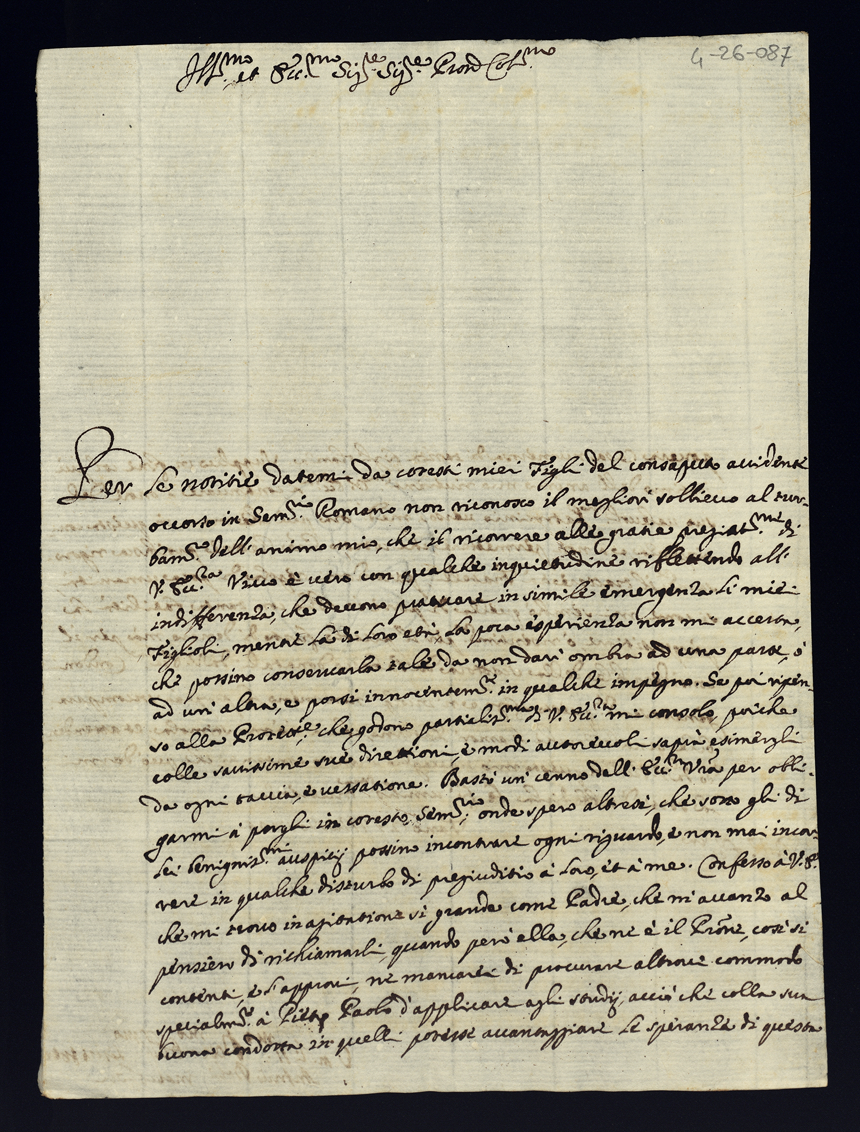 4-26-087
Ill.mo et Ecc.mo Sig.re Sig.re Pron Col.mo
Per le notitie datemi da cotesti miei Figli del consaputo accidente
occorso in Sem.rio Romano non riconosco il megliori sollievo al tur-
bam.to dell'animo mio, che il ricorrere alle gratie pregiat.me di
V. Ecc.za Vivo è vero con qualche inquietudine riflettendo all'
indifferenza, che devono praticare in simile emergenza li miei
Figlioli, mentre la di loro età, la poca esperienza non mi accerta,
che possino conservarla tale da non dari ombra ad una parte, ò
ad un'altra, e porsi innocentem.te in qualche impegno. Se poi ripen-
so alla Protett.e, che godono particolar.ma di V. Ecc.za mi consolo, poiche
colle savissime sue direttioni, e modi autorevoli saprà esimergli
da ogni taccia, e vessatione. Basti un cenno dell'Ecc.za Vra per obli-
garmi à porgli in cotesto Sem.rio, onde spero altresi, che sotto gli di
Lei benigniss.mi auspicij possino incontrare ogni riguardo, e non mai incor-
rere in qualche disturbo di pregiuditio à loro, et à me. Confesso à V. E.
che mi trovo in agitatione si grande come Padre, che m'avanzo al
pensiero di richiamarli, quando però ella, che ne è il Prone, così si
contenti, e l'approvi, ne mancarei di procurare altrove commodo
specialm.te à Pietro Paolo d'applicare agli studij, acciò che colla sua
buona condotta in quelli potesse avantaggiare le speranze di questa